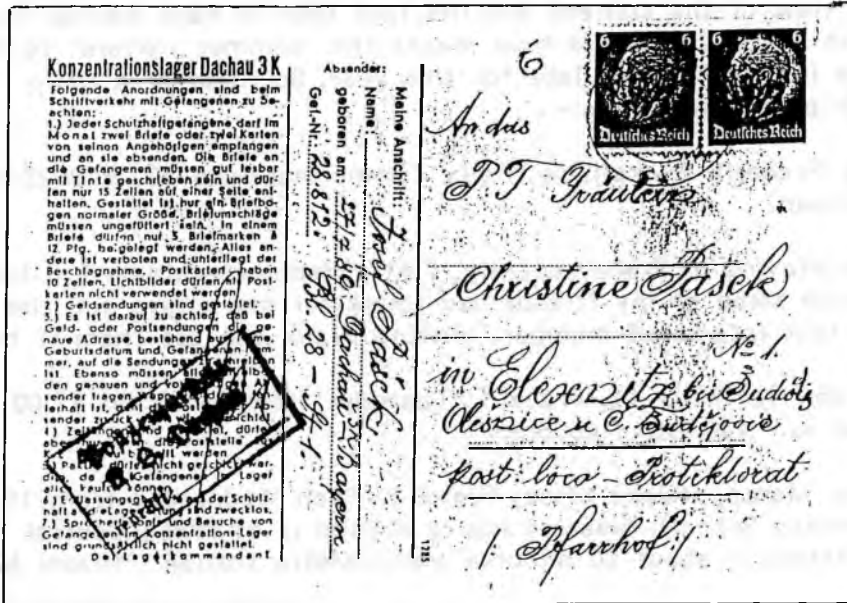 Konzentrationslager Dachau 3 K
Folgende Anordnungen sind beim
Schriftverkehr mit Gefangenen zu be-
achten:
1.) Jeder Schutzhaftgefangene darf im
Monat zwei Briefe oder zwei Karten
von seinen Angehörigen empfangen
und an sie absenden. Die Briefe an
die Gefangenen müssen gut lesbar
mit Tinte geschrieben sein und dür-
fen nur 15 Zeilen auf einer Seite ent-
halten. Gestattet ist nur ein Briefbo-
gen normaler Größe. Briefumschläge
müssen ungefüttert sein. In einem
Briefe dürfen nur 5 Briefmarken à
12 Pfg. beigelegt werden. Alles an-
dere ist verboten und unterliegt der
Beschlagnahme. Postkarten haben
10 Zeilen. Lichtbilder dürfen als Post-
karten nicht verwendet werden.
2.) Geldsendungen sind gestattet.
3.) Es ist darauf zu achten, daß bei
Geld- oder Postsendungen die ge-
naue Adresse, bestehend aus Name,
Geburtsdatum und Gefangenen-Num-
mer, auf die Sendungen
Ebenso müssen
den genauen und
sender tragen.
lerhaft ist, geht
sender zurück
4.) Zeitungen sind gestattet, dürfen
aber nur die Poststelle des
K bestellt werden
5.) Pakete dürfen nicht geschickt wer-
den, da die Gefangenen im Lager
alles kaufen können.
6.) Entlassungsgesuche aus der Schutz-
haft an die Lagerleitung sind zwecklos.
7.) Sprecherlaubnis und Besuche von
Gefangenen im Konzentrations-Lager
sind grundsätzlich nicht gestattet.
Der Lagerkommandant
Meine Anschrift:
Absender:
Name:
geboren am: Dachau 3K Bayern
Gef.-Nr.: 28 812. Bl. 28 - 4
1285
6 6
6 6
Deutsches Reich Deutsches Reich
An das
P T Fräulein
Christine Pašek
№ 1.
in Elexnitz bei Budweis
Olešnice u Č. Budějovic
post loco - Protektorat
/ Pfarrhof /